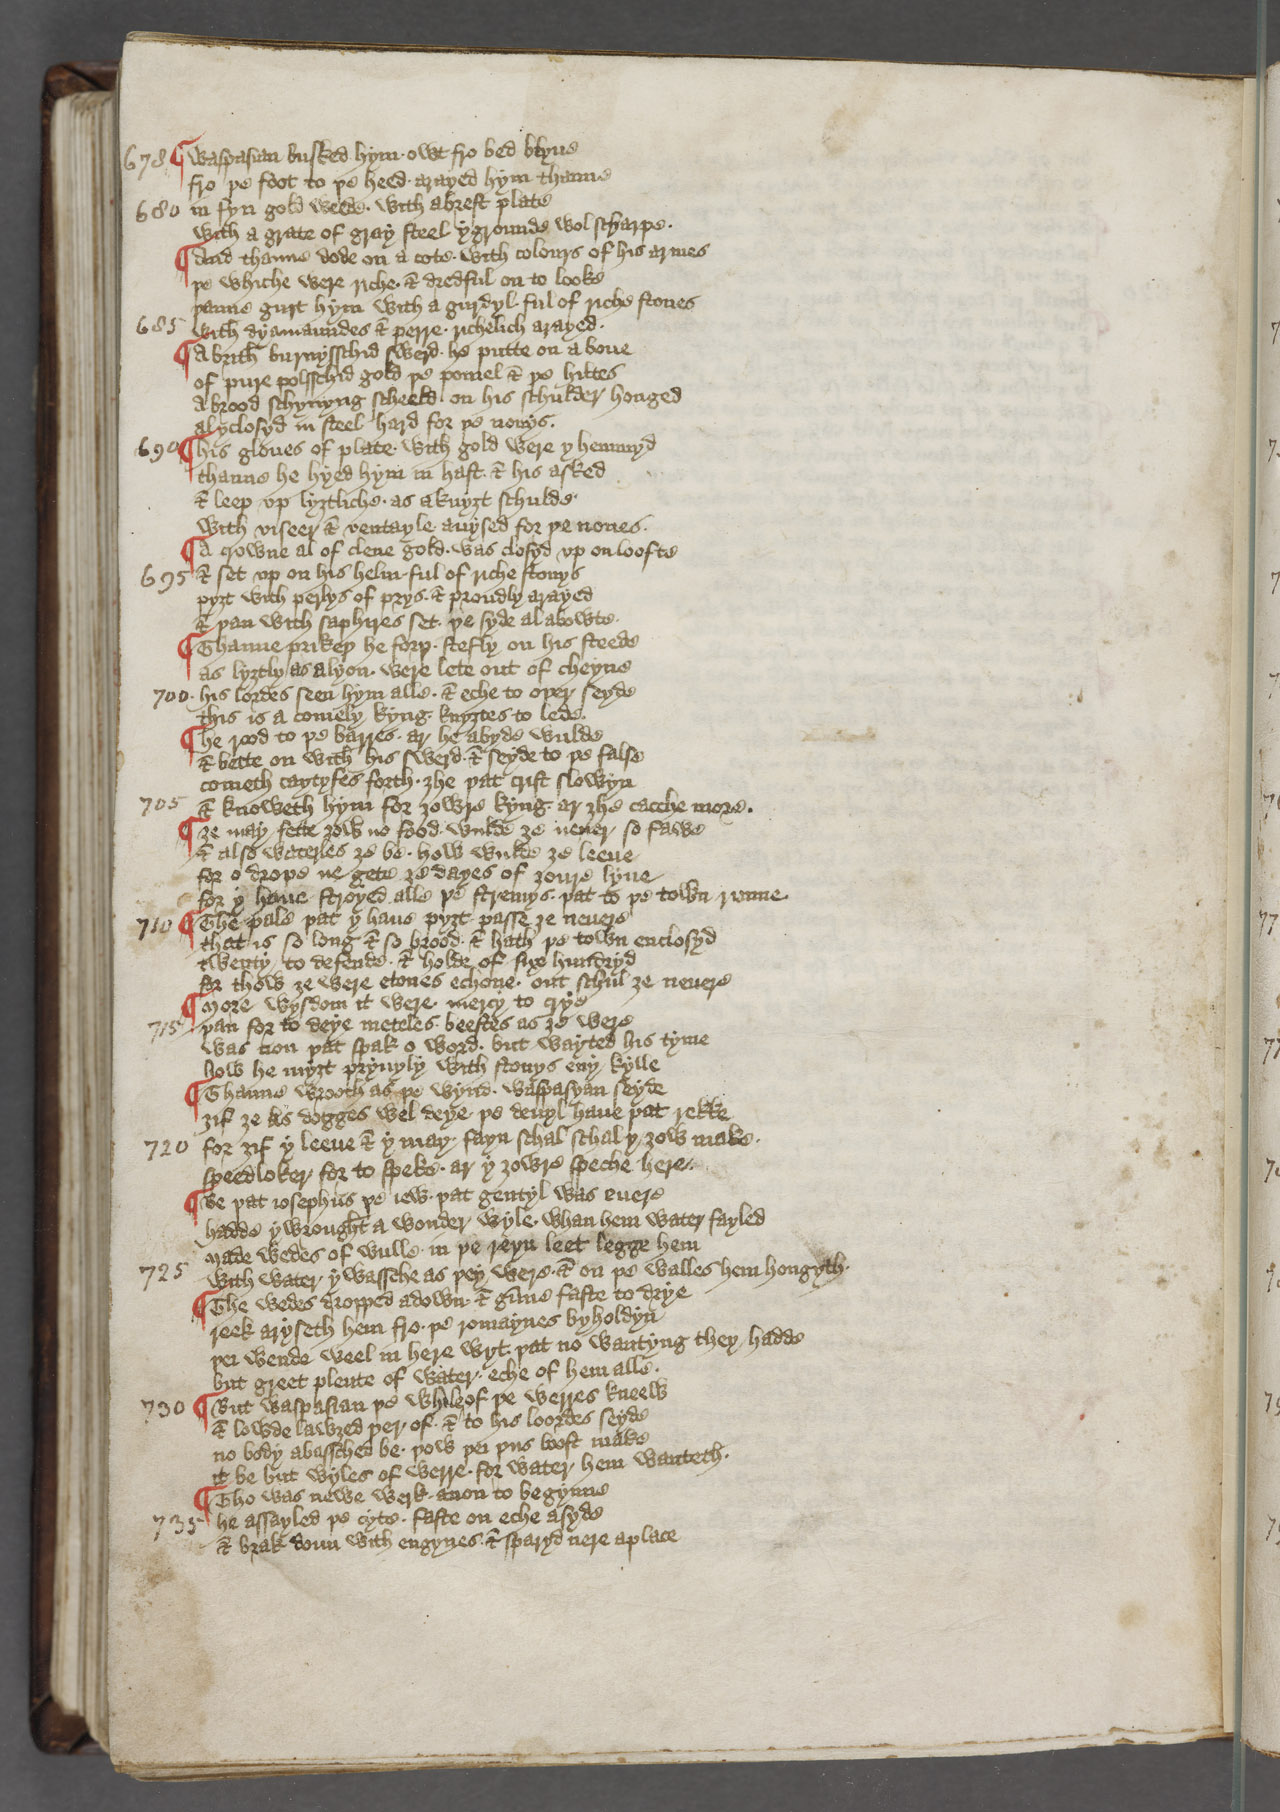 678 ¶ Waspasian busked hym · owt fro bed blyue
fro þe foot to þe heed · arayed hym thanne
680 in fyn gold wede · with a brest plate
with a grate of gray steel y grounde wol scharpe ·
¶ And thanne dode on a cote · with colours of his armes
þe whiche were riche · & dredful on to looke
þanne gurt hym with a gurdyl · ful of riche stones
685 with dyamaundes & perre · richelich arayed ·
¶ A brith burnysschid swerd · he putte on a boue
of pure polsschid gold þe pomel & þe hiltes
A brood schynyng scheeld · on his schulder honged
al yclosyd in steel hard for þe nonys ·
690 ¶ his gloues of plate · with gold were y hemmyd
thanne he hyed hym in hast · & his asked
& leep vp lyȝtliche · as a knyȝt schulde ·
with viseer & ventayle auysed for þe nones ·
¶ A crowne al of clene gold · was closyd vp on loofte
695 & set vp on his helm · ful of riche stonys
pyȝt with perlys of prys · & proudly arayed
& þan with saphires set · þe syde al abowte ·
¶ Thanne prikeþ he forþ · stefly on his steede
as lyȝtly as a lyon · were lete out of cheyne
700 · his lordes seen hym alle · & eche to oþer seyde
this is a comely kyng · knyȝtes to lede ·
¶ he rood to þe barres · ar he abyde wulde
& bette on with his swerd · & seyde to þe false
cometh caytyfes forth · ȝhe þat crist slowyn
705 & knoweth hym for ȝowre kyng · ar ȝhe cacche more ·
¶ ȝe may fette ȝow no food · wulde ȝe neuer so fawe
& also waterles ȝe be · how wulde ȝe leeue
for o drope ne gete ȝe dayes of ȝoure lyue
for y haue stroyed alle þe stremys · þat to þe town runne
710 ¶ The pale þat y haue pyȝt · passe ȝe neuere
that is so long & so brood · & hath þe town enclosyd
twenty to defende · & holde of sixe hundryd
for thow ȝe were etones echone · out schul ȝe neuere
¶ More wysdom it were · mercy to crye
715 þan for to deye meteles · beestes as ȝe were
was non þat spak o word · but wayted his tyme
how he myȝt pryuyly with stonys eny kylle
¶ Thanne wrooth as þe wynd · waspasyan seyde
ȝif ȝe as dogges wel deye · þe deuyl haue þat rekke
720 for ȝif y leeue & y may · fayn schal schal y ȝow make ·
speedloker for to speke · ar y ȝowre speche here ·
¶ Be þat iosephus þe iew · þat gentyl was euere
hadde y wrought a wonder wyle · whan hem water fayled
Made wedes of wulle · in þe reyn leet legge hem
725 with water y wassche as þey were · & on þe walles hem hongyth ·
¶ The wedes dropped adown · & gūne faste to drye
reek aryseth hem fro · þe romaynes byholdyn
þei wende weel in here wyt · þat no wantyng they hadde
but greet plente of water · eche of hem alle ·
730 ¶ But waspasian þe whileof þe werres kneelw
& lowde lawȝed þer of · & to his loordes seyde
no body abassched be · þow þei þus boost make
it be but wyles of werre · for water hem wanteth ·
¶ Tho was newe werk · anon to begynne
735 he assayled þe cyte · faste on eche asyde
& brak doun with engynes · & sparyd nere a place